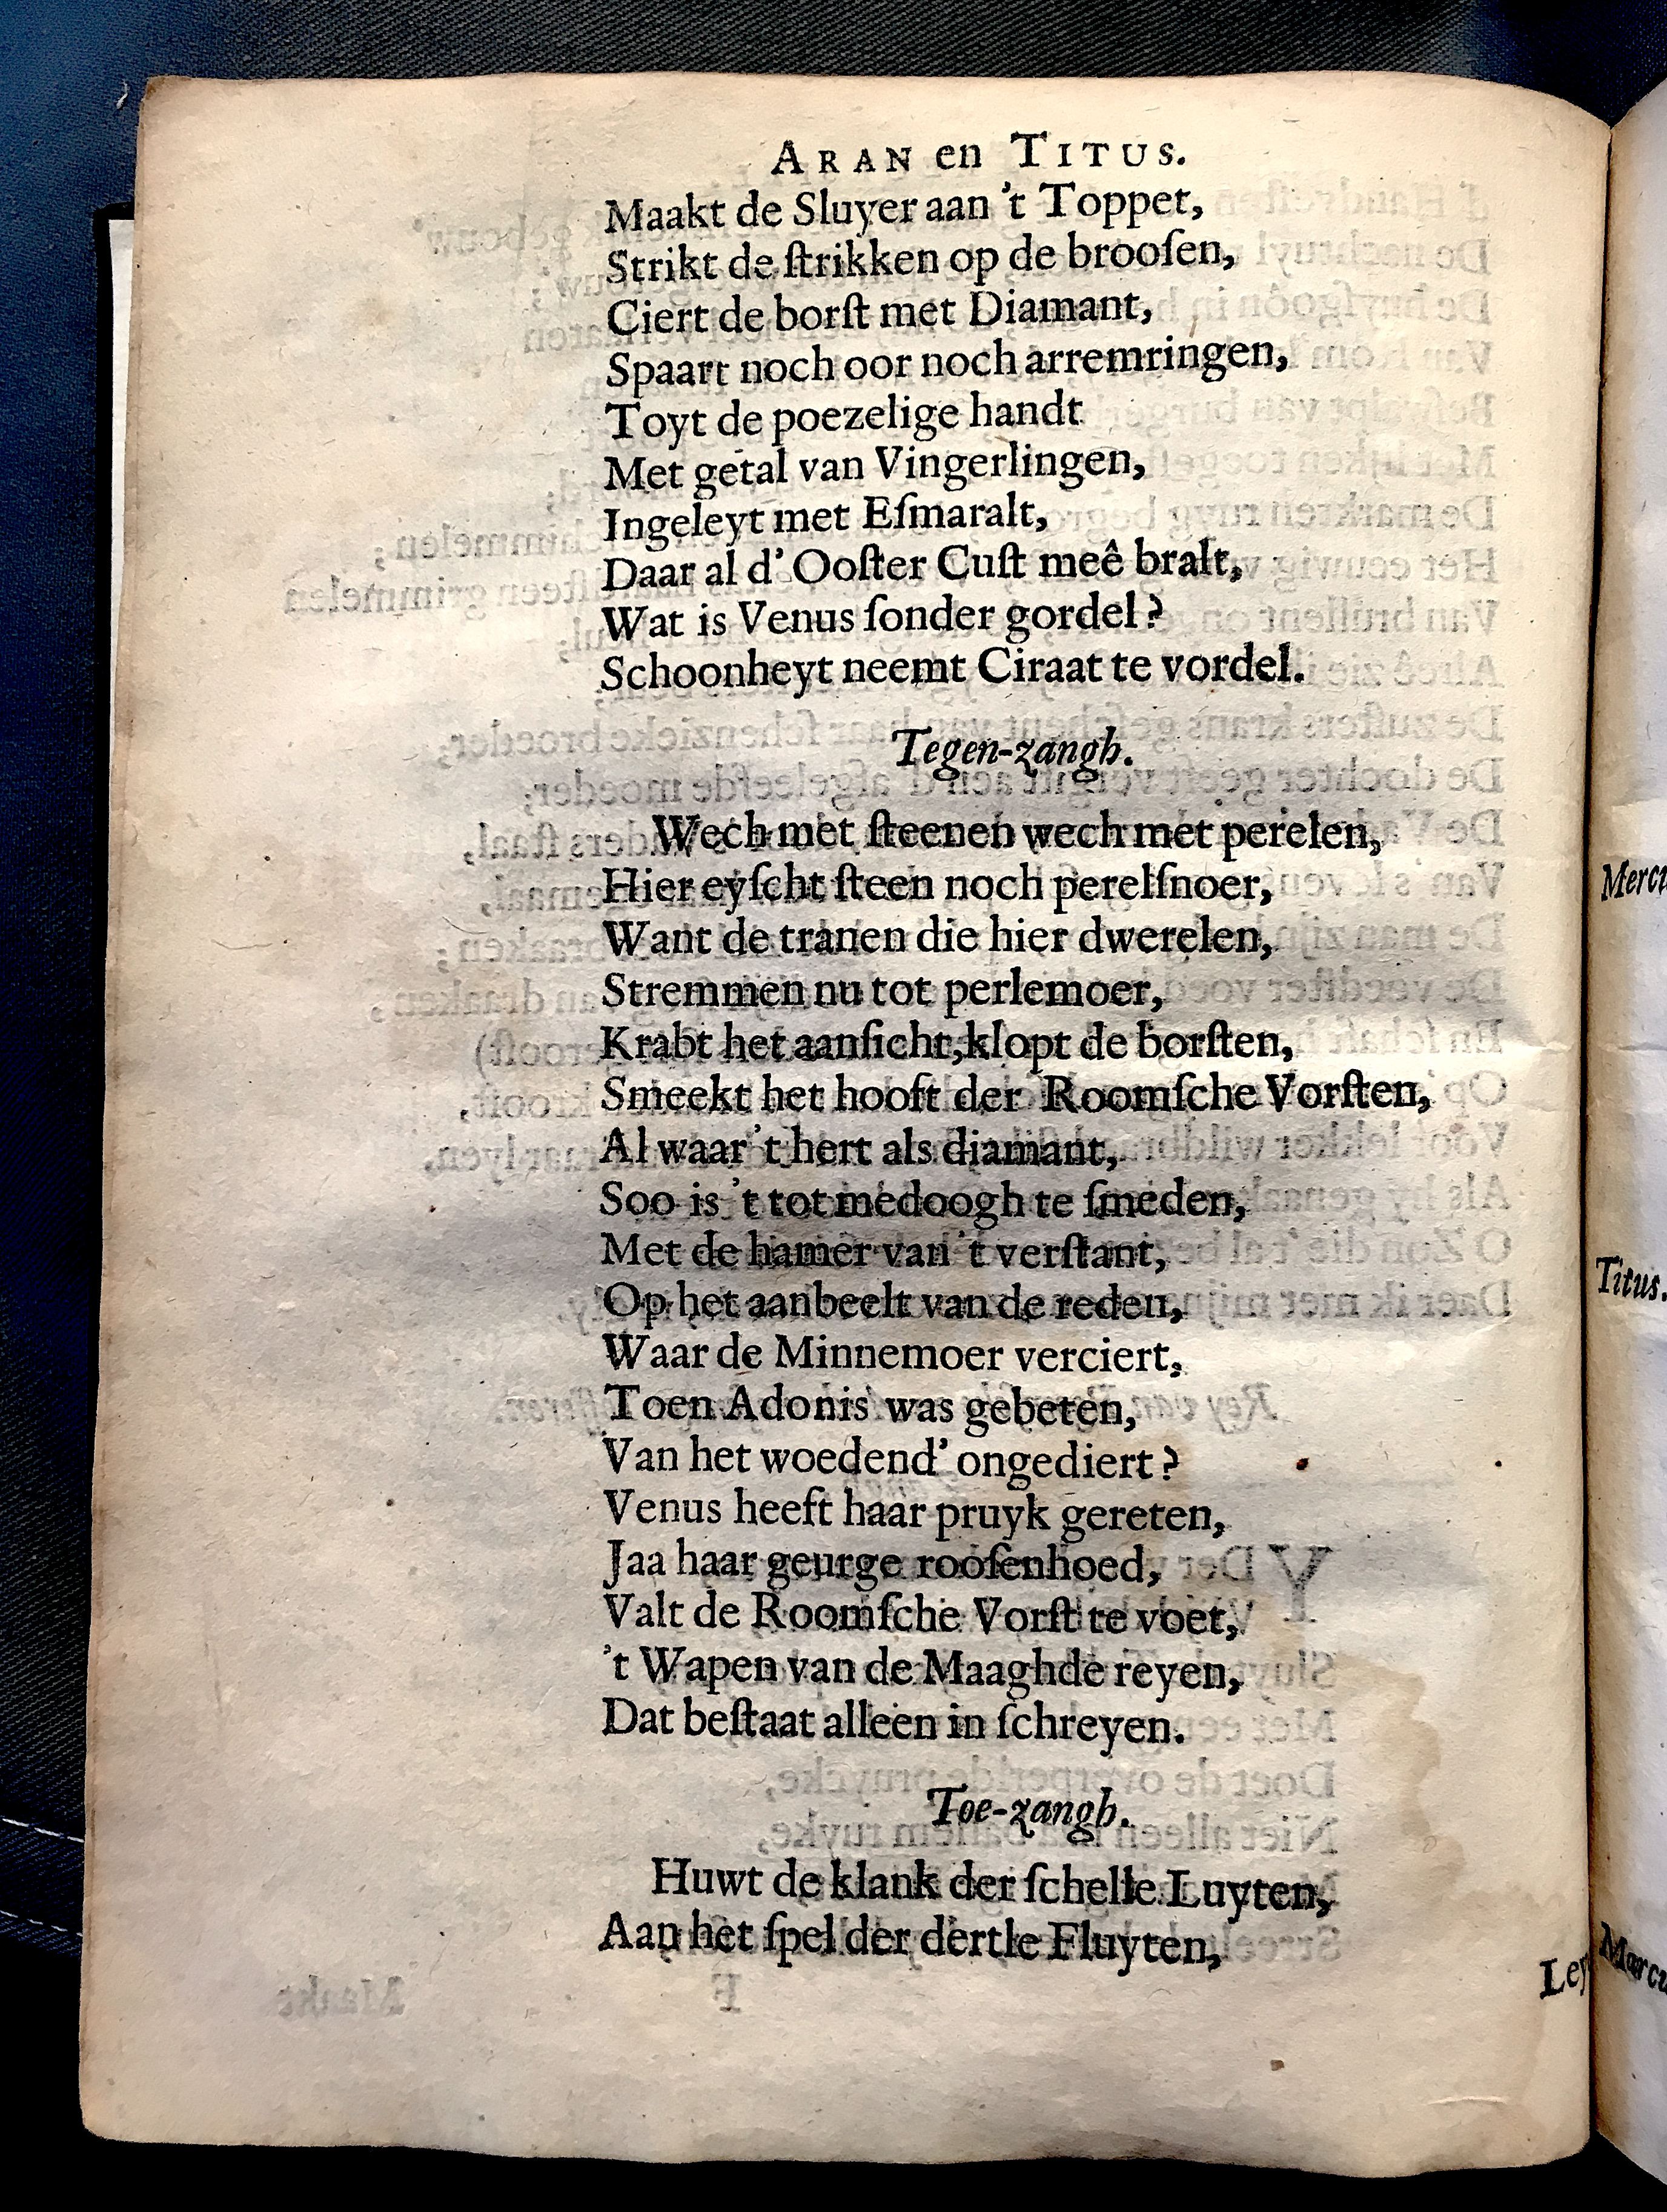 ARAN en TITUS.
Maakt de Sluyer aan 't Toppet,
Strikt de ſtrikken op de brooſen,
Ciert de borſt met Diamant,
Spaart noch oor noch arremringen,
Toyt de poezelige handt
Met getal van Vingerlingen,
Ingeleyt met Eſmaralt,
Daar al d' Ooſter Cuſt meê bralt,
Wat is Venus ſonder gordel?
Schoonheyt neemt Ciraat te vordel.
Tegen-zangh.
Wech met ſteenen wech met perelen,
Hier eyſcht ſteen noch perelſnoer,
Want de tranen die hier dwerelen,
Stremmen nu tot perlemoer,
Krabt het aanſicht,klopt de borſten,
Smeekt het hooft der Roomſche Vorſten,
Al waar 't hert als diamant,
Soo is 't tot medoogh te ſmeden,
Met de hamer van 't verſtant,
Op het aanbeelt van de reden,
Waar de Minnemoer verciert,
Toen Adonis was gebeten,
Van het woedend' ongediert?
Venus heeft haar pruyk gereten,
Jaa haar geurge rooſenhoed,
Valt de Roomſche Vorſt te voet,
't Wapen van de Maaghde reyen,
Dat beſtaat alleen in ſchreyen.
Toe-zangh.
Huwt de klank der ſchelle Luyten,
Aan het ſpel der dertle Fluyten,
Ley
Mercu
Titus.
Marcu